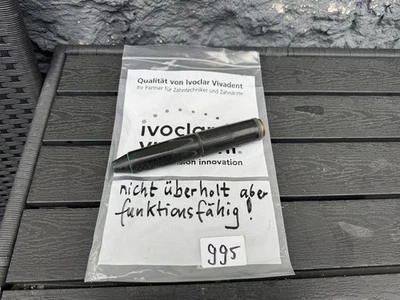 Qualität von Ivoclar Vivadent
Ihr Partner für Zahntechniker und Zahnärzte
ivoclar
innovation
nicht überholt aber
funktionsfähig!
995